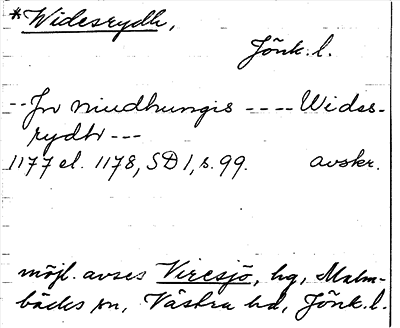 *Widesrydh,
Jönk. l.
-- Jn niudhungis ---- Wides-
rydh ---
1177 el. 1178, SD 1, s. 99. avskr.
möjl. avses Viresjö, hg, Malm-
bäcks sn, Västra hd, Jönk. l.